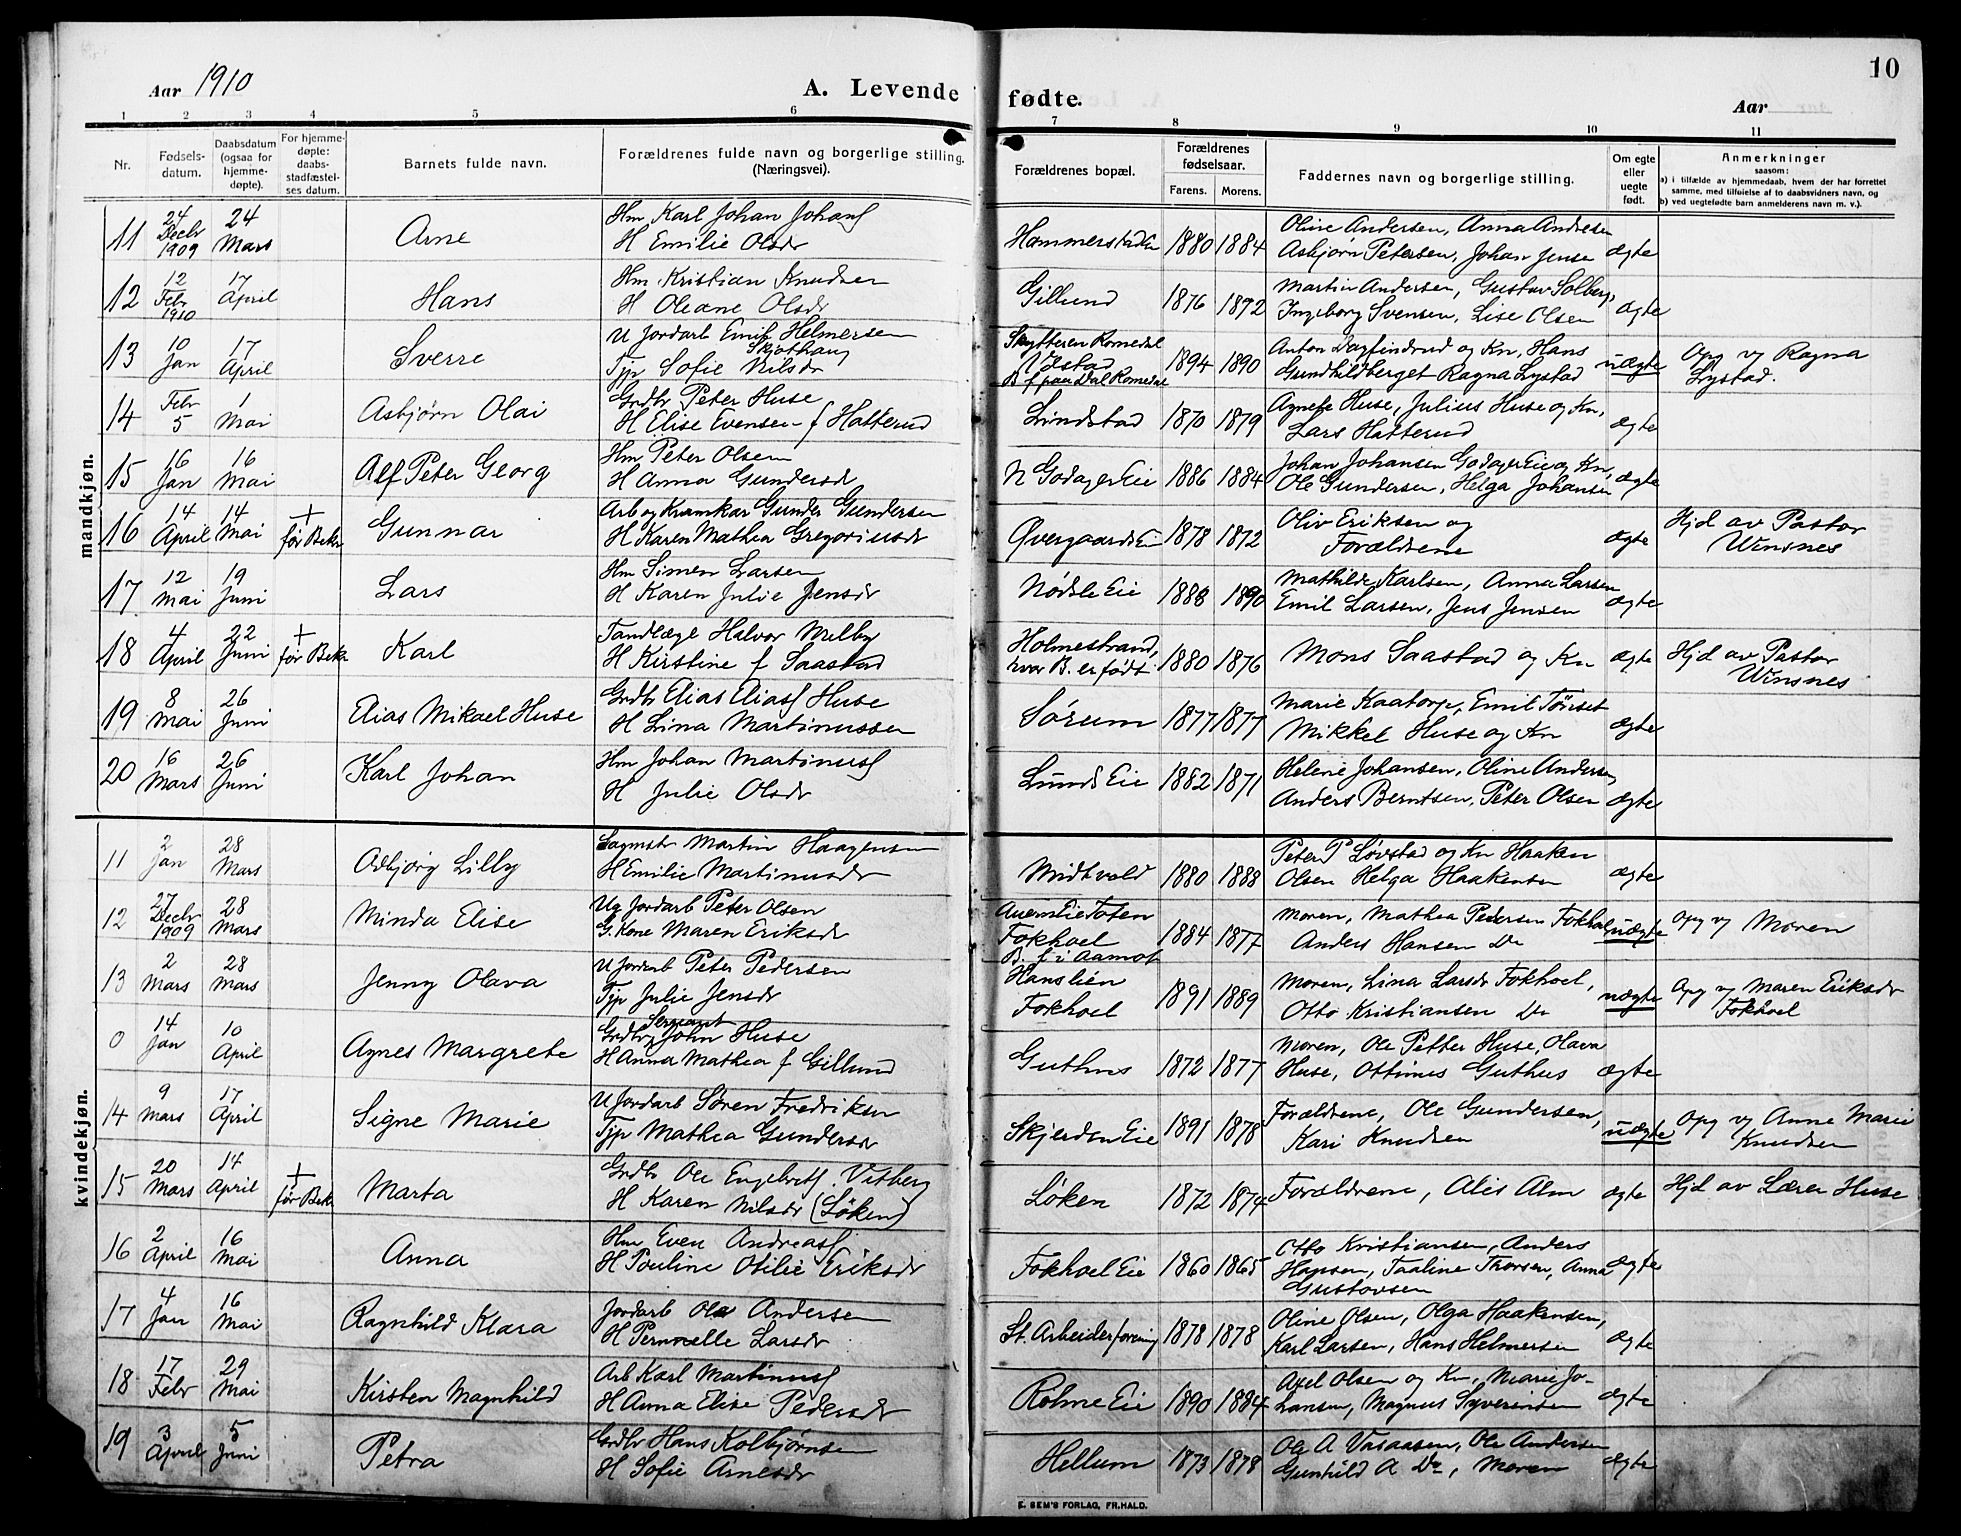 Aar 1910
A. Levende
1 2 3 4 5 6
Nr.
Fødsels-
datum.
Daabsdatum
(ogsaa for
hjemme-
døpte).
For hjemme-
døpte:
daabs-
stadfæstel-
ses datum.
Barnets fulde navn.
Forældrenes fulde navn og borgerlige stilling.
(Næringsvei).
mandkjøn.
11 24 Decbr 1909 24 Mars Arne
Hm Karl Johan Johans
H Emilie Olsdr
12 12 Febr 1910 17 April Hans
Hm Kristian Knudsen
H Oleane Olsdr
13 10 Jan 17 April Sverre
U Jordarb Emil Helmersen
Skjothaug
Tjp Sofie Nilsdr
14 Febr 5 1 Mai Asbjørn Olai
Grdbr Peter Huse
H Elise Evensen f Hatterud
15 16 Jan 16 Mai Alf Peter Georg
Hm Peter Olsen
H Anna Gundersdr
16 14 April 14 Mai + før Bekr Gunnar
Arb og Kramkar Gunder Gundersen
H Karen Mathea Gregoriusdr
17 12 Mai 19 Juni Lars
Hm Simen Larsen
H Karen Julie Jensdr
18 4 April 22 Juni + før Bekr Karl
Tandlæge Halvor Melby
H Kirstine f Saastad
19 8 Mai 26 Juni Elias Mikael Huse
Grdbr Elias Eliass Huse
H Lina Martinussen
20 16 Mars 26 Juni Karl Johan
Hm Johan Martinuss
H Julie Olsdr
kvindekjøn.
11 2 Jan 28 Mars Odbjørg Lilly
Sagmstr Martin Haagensen
H Emilie Martinusdr
12 27 Decbr 1909 28 Mars Minda Elise
Ug Jordarb Peter Olsen
G. Kone Maren Eriksdr
13 2 Mars 28 Mars Jenny Olava
U Jordarb Peter Pedersen
Tjp Julie Jensdr
0 14 Jan 10 April Agnes Margrete
Sergeant
Grdbr John Huse
H Anna Mathea f Gillund
14 9 Mars 17 April Signe Marie
U Jordarb Søren Fredriksen
Tjp Mathea Gundersdr
15 20 Mars 14 April + før Bekr Marta
Grdbr Ole Engebrets. Vitberg
H Karen Nilsdr (Løken)
16 2 April 16 Mai Anna
Hm Even Andreass
H Pouline Otilie Eriksdr
17 4 Jan 16 Mai Ragnhild Klara
Jordarb Ole Andersen
H Pernnelle Larsdr
18 17 Febr 29 Mai Kirsten Magnhild
Arb Karl Martinuss
H Anna Elise Pedersdr
19 3 April 5 Juni Petra
Grdbr Hans Kolbjørnsen
H Sofie Arnesdr
10
fødte.
Aar
7 8 9 10 11
Forældrenes bopæl.
Forældrenes
fødselsaar.
Farens. Morens.
Faddernes navn og borgerlige stilling.
Om egte
eller
uegte
født.
Anmerkninger
saasom:
a) i tilfælde av hjemmedaab, hvem der har forrettet
samme, med tilføielse av to daabsvidners navn, og
b) ved uegtefødte barn anmelderens navn m. v.).
Oline Andersen, Anna Andresen
Hammerstad 1880 1884 Asbjørn Petersen, Johan Jensen ægte
Martin Andersen, Gustav Solberg,
Gillund 1876 1872 Ingeborg Svensen, Lise Olsen ægte
Skytteren Romedal
Ystad
B f paa Dal Romedal
1894 1890
Anton Dagfindrud og Kn, Hans
Gundhildberget Ragna Lystad uægte
Opg v Ragna
Lystad.
Agnete Huse, Julius Huse og Kn,
Lindstad 1870 1879 Lars Hatterud ægte
Johan Johansen Godager Eie og Kn,
N Godager Eie 1886 1884 Ole Gundersen, Helga Johansen ægte
Oliv Eriksen og
Øvergaards Ei 1878 1872 Forældrene ægte
Hjd av Pastor
Winsnes
Mathilde Karlsen, Anna Larsen
Nødsle Eie 1888 1890 Emil Larsen, Jens Jensen ægte
Holmestrand,
hvor B. er født 1880 1876 Mons Saastad og Kn ægte
Hjd av Pastor
Winsnes
Marie Kaatorp, Emil Tørset
Sørum 1877 1877 Mikkel Huse og Kn ægte
Helene Johansen, Oline Andersen,
Lunds Eie 1882 1871 Anders Berntsen, Peter Olsen ægte
Peter P Løvstad og Kn Haaken
Midtvold 1880 1888 Olsen Helga Haakensen ægte
Auerns Eie Toten
Fokhoel
B. f. i Aamot
1884 1877
Moren, Mathea Pedersen Fokhoel
Anders Hansen Do uægte
Opg v Moren
Hanslien
Fokhoel
1891 1889
Moren, Lina Larsdr Fokhoel,
Otto Kristiansen Do uægte
Opg v Maren Eriksdr
Fokhoel
Moren, Ole Petter Huse, Olava
Guthus 1872 1877 Huse, Ottinius Guthus ægte
Forældrene, Ole Gundersen,
Skjerden Eie 1891 1878 Kari Knudsen uægte
Opg v Anne Marie
Knudsen
Løken 1872 1874 Forældrene, Alis Alm ægte Hjd av Lærer Huse
Otto Kristiansen, Anders
Fokhoel Eie 1860 1865 Hansen, Taaline Thorsen, Anna ægte
Gustavsen
Oline Olsen, Olga Haakensen,
St. Arbeiderforening 1878 1878 Karl Larsen, Hans Helmersen ægte
Axel Olsen og Kn, Marie Jo-
Rohme Eie 1890 1884 hansen, Magnus Syverinsen ægte
Ole A Vasaasen, Ole Andersen
Hellum 1873 1878 Gunhild A Do, Moren ægte
E. SEM'S FORLAG, FR.HALD.